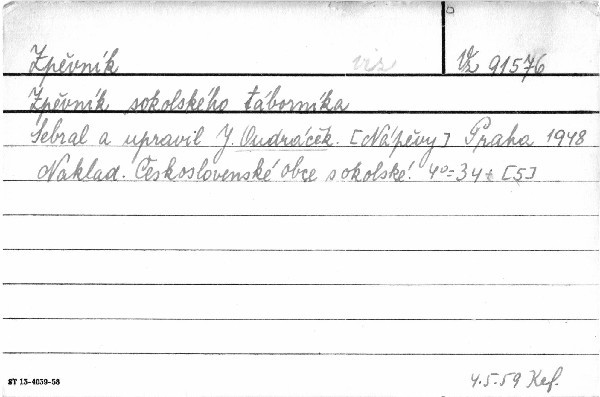 Zpěvník viz Vž 91576
Zpěvník sokolského táborníka
Sebral a upravil J. Ondráček. [Nápěvy] Praha 1948
Naklad. Československé obce sokolské. 4°= 34 + [5]
ST 13-4039-58
4.5.59 Kef.